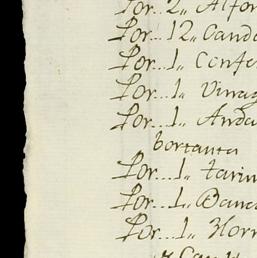 Por... 2,, Alfor
Por... 12,, Cand
Por... 1,, Confe
Por... 1,, Vinag
Por... 1,, Anda
bortanta
Por... 1,, tarin
Por... 1,, Banc
Por... 1,, Horn